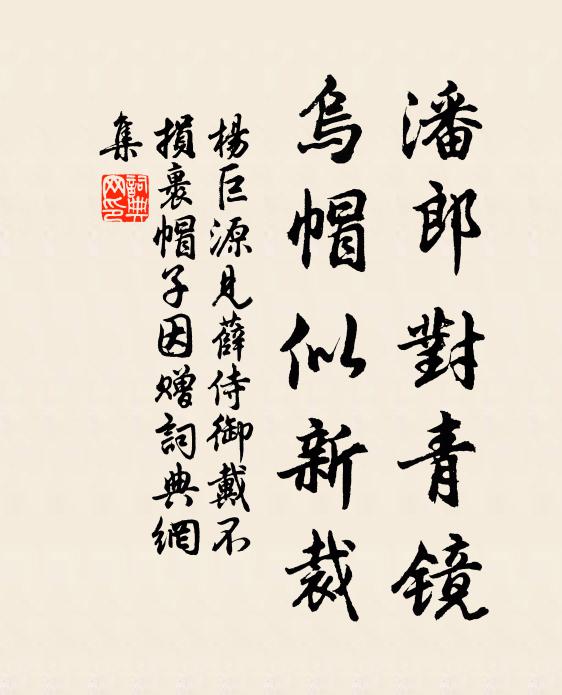 潘郎對青镜
烏帽似新裁
楊巨源見薛侍御戴不
損裹帽子因赠詞典網
集
詞典网印